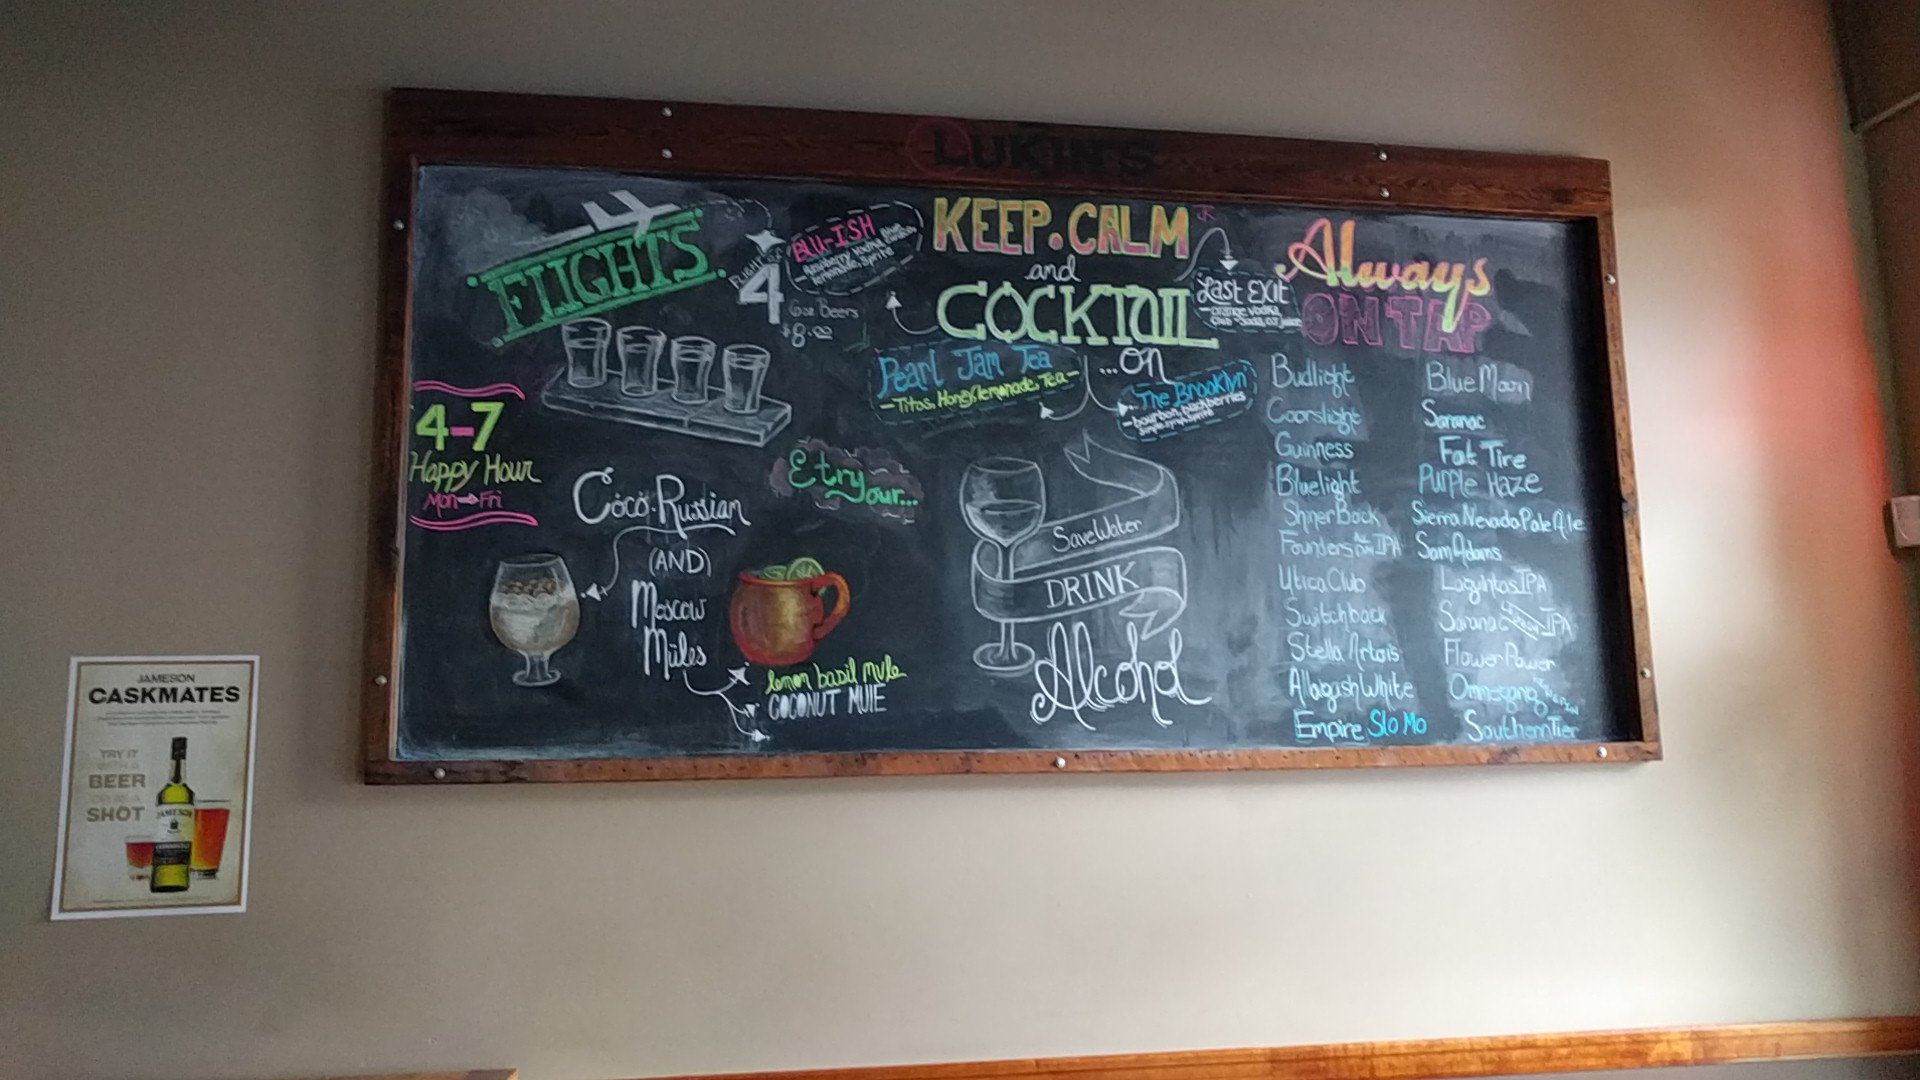 LUKIN'S
FLIGHTS
FLIGHT OF
4
6oz Beers
$8.00
4-7
Happy Hour
Mon→Fri
BLU-ISH
- Raspberry Vodka, Blue
lemonade, Sprite
KEEP.CALM
and
COCKTAIL
...on
Last Exit
- orange vodka,
Club-Soda, OJ juice
Pearl Jam Tea
- Titos, Honey, lemonade, Tea -
The Brooklyn
- bourbon, blackberries
simple syrup, Sprite
& try
our...
Coco-Russian
(AND)
Moscow
Mules
lemon basil mule
COCONUT MULE
Save Water
DRINK
Alcohol
Always
ON TAP
Budlight
Coorslight
Guinness
Bluelight
Shiner Bock
Founders All Day IPA
Utica Club
Switchback
Stella Artois
Allagash White
Empire Slo Mo
Blue Moon
Saranac
Fat Tire
Purple Haze
Sierra Nevada Pale Ale
Sam Adams
Laguhtas IPA
Saranac IPA
Flower Power
Ommegang
Southern Tier
JAMESON
CASKMATES
TRY IT
WITH A
BEER
OR AS A
SHOT
JAMESON